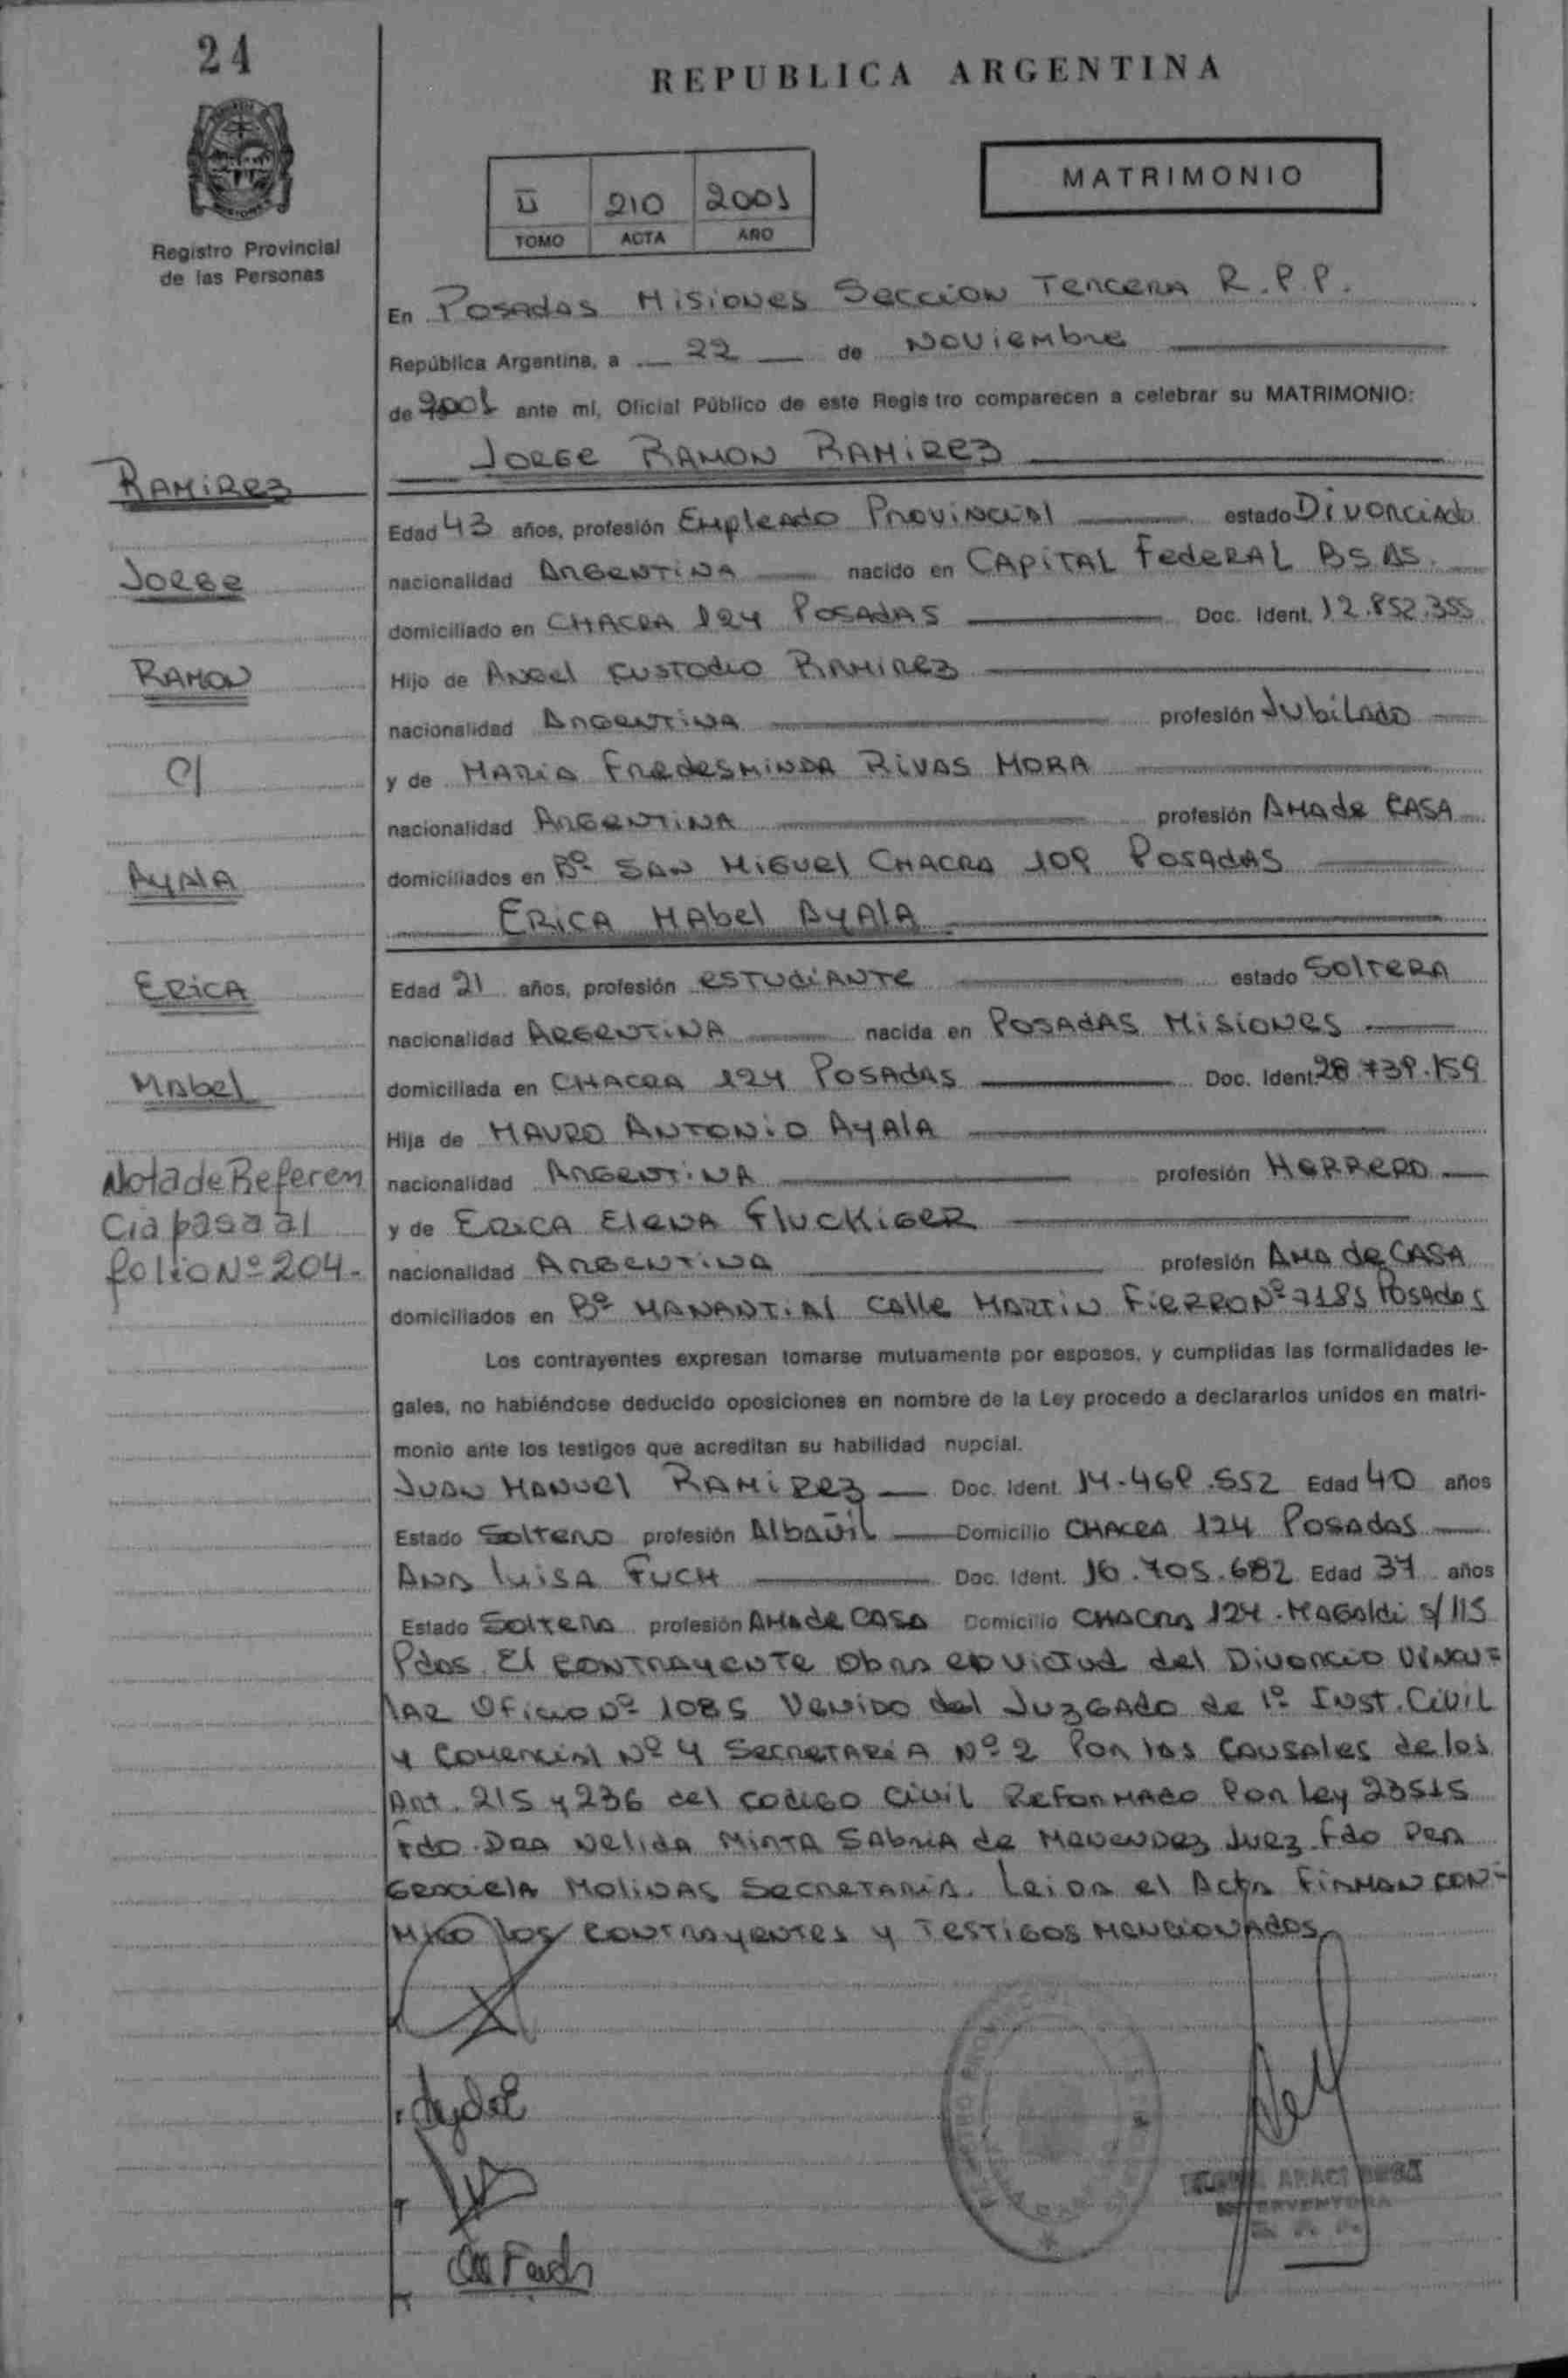 24
REPUBLICA ARGENTINA
MATRIMONIO
II 210 2001
TOMO ACTA AÑO
Registro Provincial
de las Personas
En Posadas Misiones Seccion Tercera R.P.P.
República Argentina, a 22 de Noviembre
de 2001 ante mí, Oficial Público de este Registro comparecen a celebrar su MATRIMONIO:
Jorge Ramon Ramirez
Ramirez
Edad 43 años, profesión Empleado Provincial estado Divorciado
nacionalidad Argentina nacido en Capital Federal Bs As.
Jorge
domiciliado en Chacra 124 Posadas Doc. Ident. 12.852.355
Hijo de Angel Custodio Ramirez
Ramon
nacionalidad Argentina profesión Jubilado
y de Maria Fredesminda Rivas Mora
C/
nacionalidad Argentina profesión Ama de Casa
domiciliados en Bº San Miguel Chacra 109 Posadas
Ayala
Erica Mabel Ayala
Edad 21 años, profesión estudiante estado Soltera
Erica
nacionalidad Argentina nacida en Posadas Misiones
domiciliada en Chacra 124 Posadas Doc. Ident. 28.739.159
Mabel
Hija de Mauro Antonio Ayala
nacionalidad Argentina profesión Herrero
Nota de Referen
y de Erica Elena Fluckiger
Cia pasa al
nacionalidad Argentina profesión Ama de Casa
folio Nº 204.-
domiciliados en Bº Manantial Calle Martin Fierro Nº 7185 Posadas
Los contrayentes expresan tomarse mutuamente por esposos, y cumplidas las formalidades le-
gales, no habiéndose deducido oposiciones en nombre de la Ley procedo a declararlos unidos en matri-
monio ante los testigos que acreditan su habilidad nupcial.
Juan Manuel Ramirez Doc. Ident. 14.469.552 Edad 40 años
Estado Soltero profesión Albañil Domicilio Chacra 124 Posadas
Ana Luisa Fuch Doc. Ident. 16.705.682 Edad 37 años
Estado Soltera profesión Ama de Casa Domicilio Chacra 124. Magaldi s/ 115
Pdas. El contrayente Obra en Virtud del Divorcio Vincu=
lar Oficio Nº 1085 Venido del Juzgado de 1º Inst. Civil
y Comercial Nº 4 Secretaria Nº 2 Por las Causales de los
Art. 215 y 236 del Codigo Civil Reformado Por Ley 23515
Fdo. Dra Nelida Mirta Sabria de Menendez Juez. Fdo Dra
Graciela Molinas Secretaria. Leida el Acta Firman con=
migo los contrayentes y Testigos Mencionados